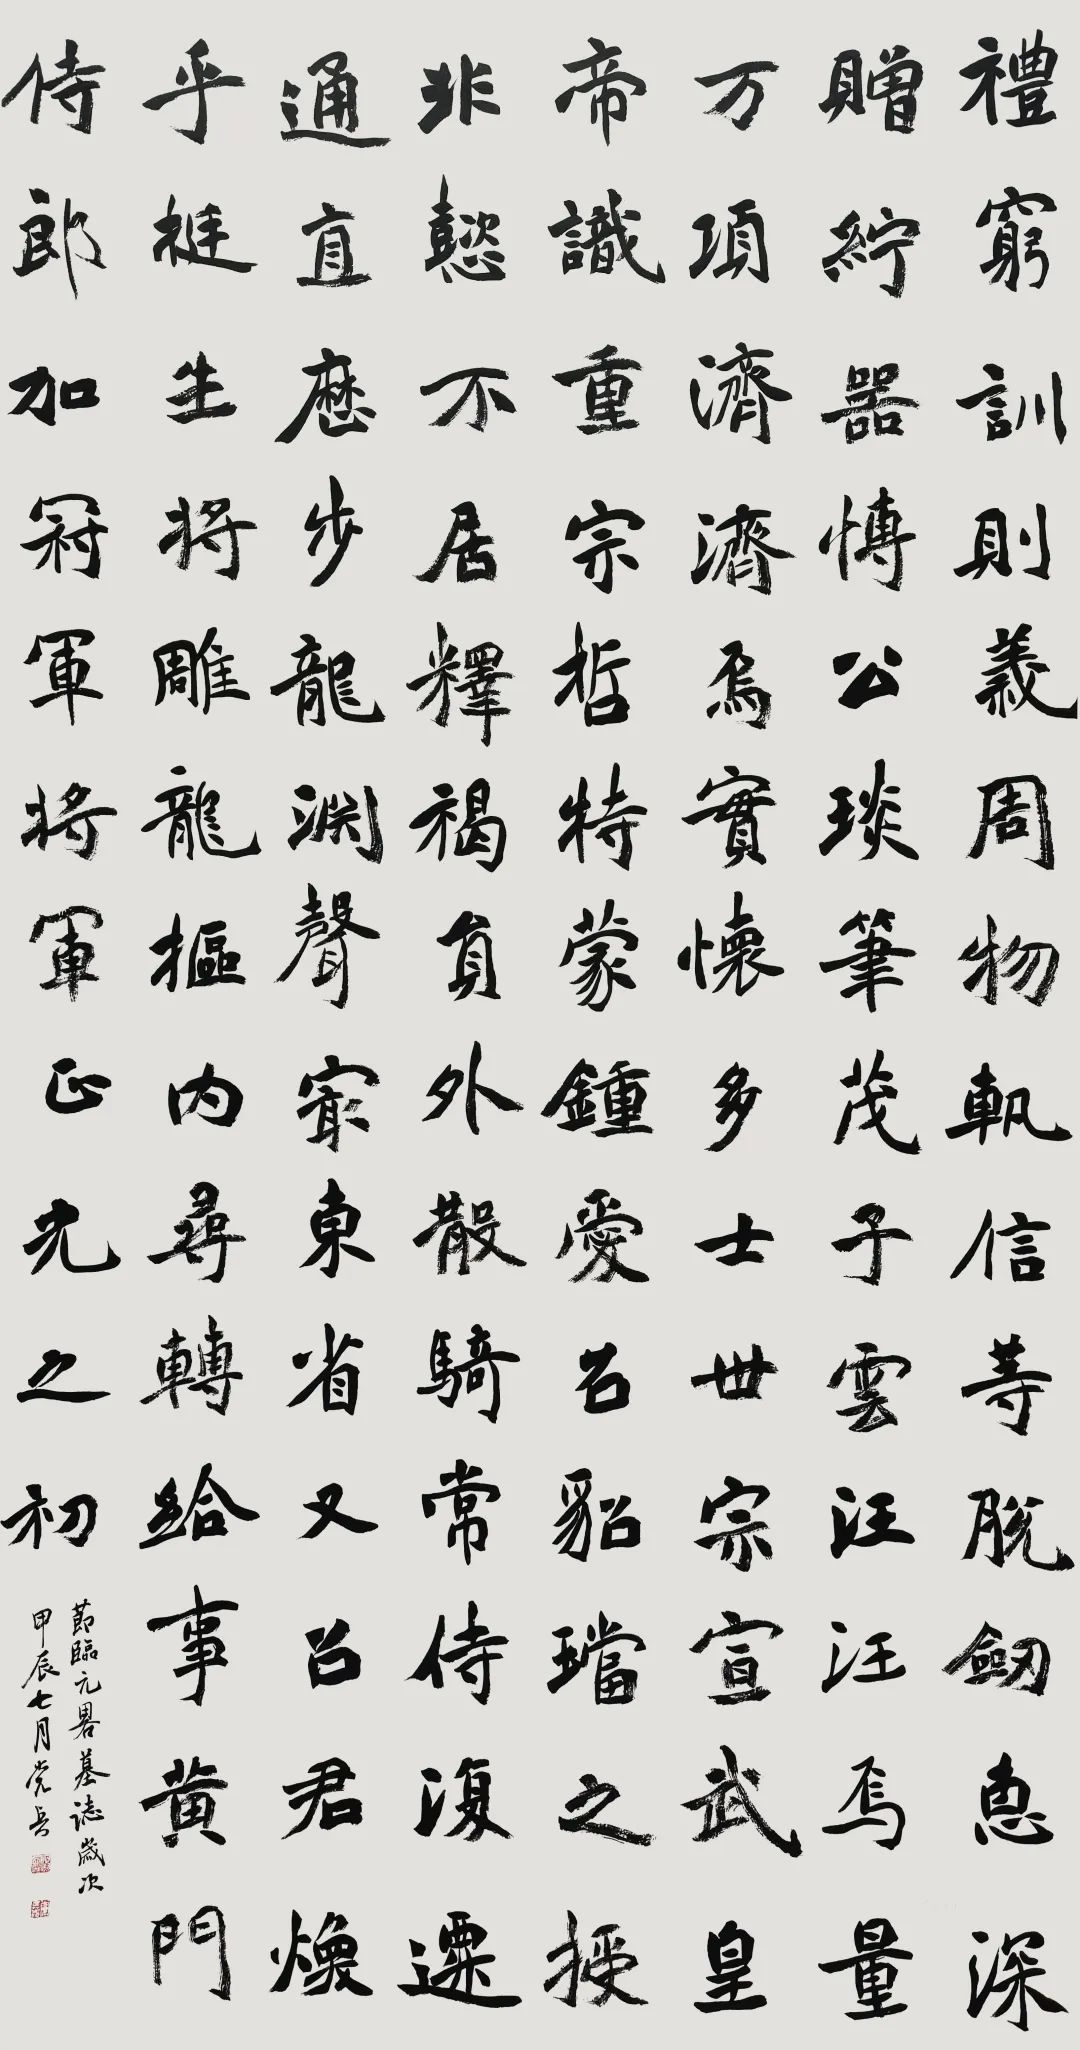 禮窮訓則義周物軌信蓴脫劒惠深
贈紵器慱公琰筆茂子雲汪汪焉量
万項濟濟焉實懷多士世宗宣武皇
帝識重宗哲特蒙鍾愛召貂璫之授
非懿不居釋褐員外散騎常侍復遷
通直歷步龍淵聲寂東省又召君煥
乎挻生将雕龍摳內尋轉給事黃門
侍郎加冠軍将軍正光之初
節臨元畧墓誌歲次
甲辰七月党兵